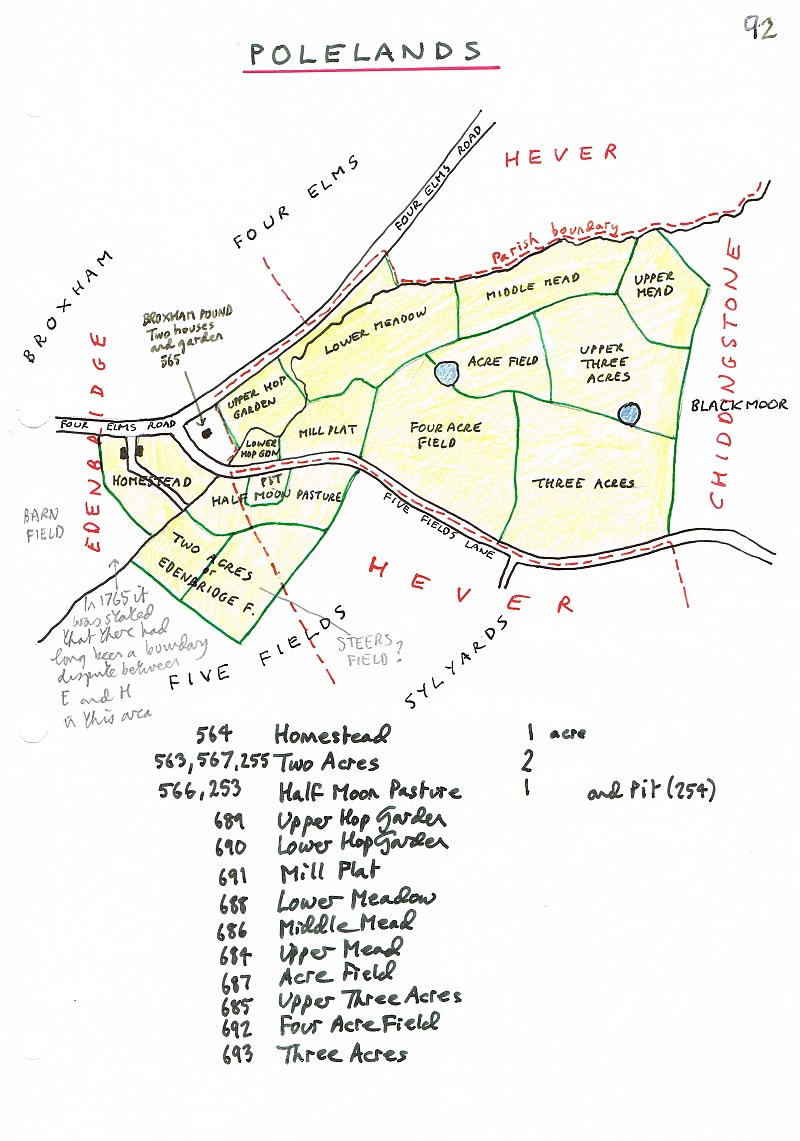 92
POLELANDS
HEVER
FOUR ELMS ROAD
FOUR ELMS
Parish boundary
BROXHAM
UPPER
MEAD
MIDDLE MEAD
CHIDDINGSTONE
BROXHAM POUND
Two houses
and garden
565
LOWER MEADOW
EDENBRIDGE
ACRE FIELD
UPPER
THREE
ACRES
UPPER HOP
GARDEN
BLACKMOOR
FOUR ELMS ROAD
MILL PLAT
FOUR ACRE
FIELD
LOWER
HOP GDN
HOMESTEAD
PIT
HALF MOON PASTURE
THREE ACRES
BARN
FIELD
FIVE FIELDS LANE
TWO ACRES
or
EDENBRIDGE F.
HEVER
In 1765 it
was stated
that there had
long been a boundary
dispute between
E and H
in this area
STEERS
FIELD?
FIVE FIELDS
SYLYARDS
564 Homestead 1 acre
563,567,255 Two Acres 2
566,253 Half Moon Pasture 1 and Pit (254)
689 Upper Hop Garden
690 Lower Hop Garden
691 Mill Plat
688 Lower Meadow
686 Middle Mead
684 Upper Mead
687 Acre Field
685 Upper Three Acres
692 Four Acre Field
693 Three Acres